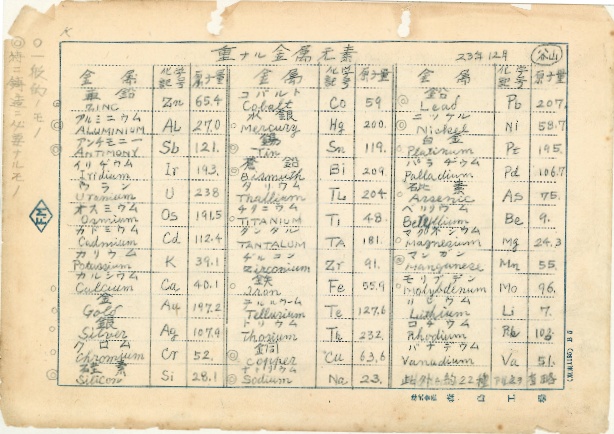 ○一般的ノモノ
◎特ニ鋳造ニ必要ナルモノ
重ナル金属元素 23年12月 谷山
金属 化学記号 原子量 金属 化学記号 原子量 金属 化学記号 原子量
亜鉛 ZINC Zn 65.4 コバルト Cobalt Co 59. 鉛 Lead Pb 207.
アルミニウム ALUMINIUM AL 27.0 水銀 Mercury Hg 200. ニッケル Nickel Ni 58.7
アンチモニー ANTIMONY Sb 121. 錫 Tin Sn 119. 白金 Platinum Pt 195.
イリヂウム Iridium Ir 193. 蒼鉛 Bismuth Bi 209. パラヂウム Palladium Pd 106.7
ウラン Uranium U 238 タリウム Thallium TL 204 砒素 Arsenic AS 75.
オスミウム Osmium Os 191.5 チタニウム TITANIUM Ti 48. ベリリウム Be 9.
カドミウム Cadmium Cd 112.4 タンタル TANTALUM TA 181. マグネシウム Magnesium Mg 24.3
カリウム Potassium K 39.1 ヂルコン Zirconium Zr 91. マンガン Manganese Mn 55.
カルシウム Calcium Ca 40.1 鉄 Iron Fe 55.9 モリブデン Molybdenum Mo 96.
金 Gold Au 197.2 テルルウム Tellurium Te 127.6 リシウム Lithium Li 7.
銀 Silver Ag 107.9 トリウム Thorium Th 232. ロヂウム Rhodium Rh 103.
クロム Chromium Cr 52. 銅 Copper Cu 63.6 バナヂウム Vanadium Va 51.
硅素 Silicon Si 28.1 ナトリウム Sodium Na 23. 此外ニ約22種
FM